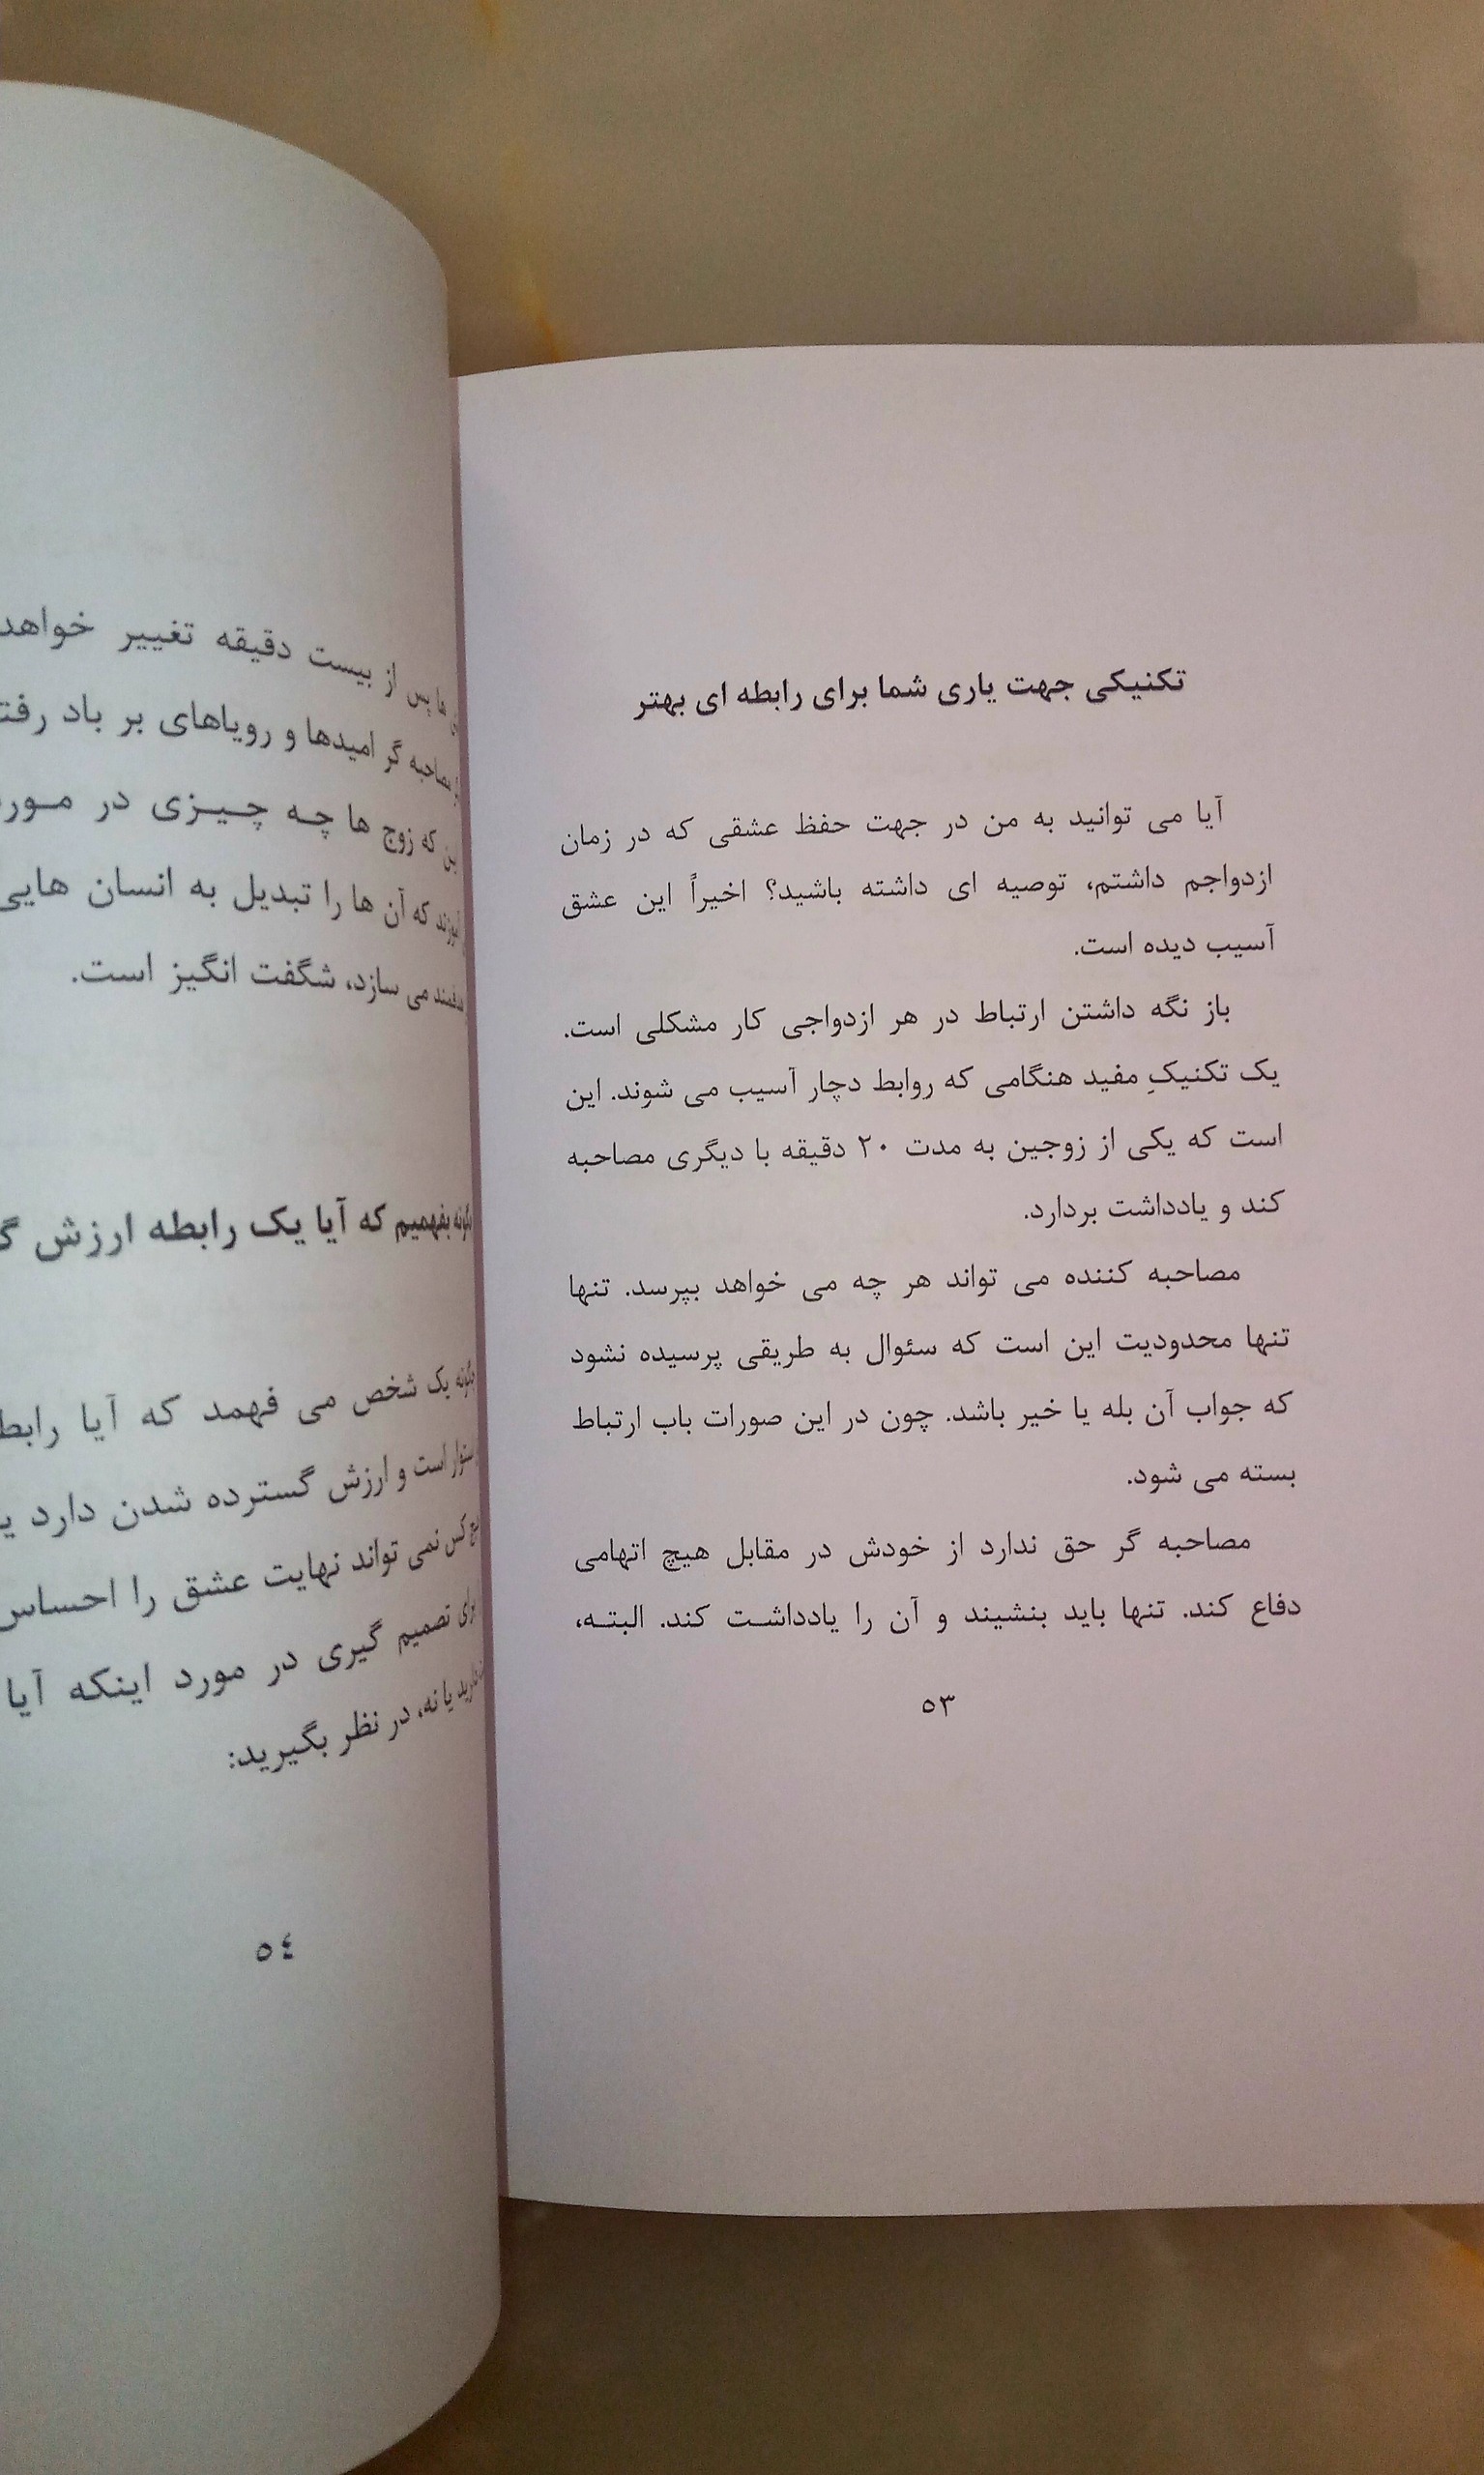 تکنیکی جهت یاری شما برای رابطه ای بهتر
آیا می توانید به من در جهت حفظ عشقی که در زمان
ازدواجم داشتم، توصیه ای داشته باشید؟ اخیراً این عشق
آسیب دیده است.
باز نگه داشتن ارتباط در هر ازدواجی کار مشکلی است.
یک تکنیکِ مفید هنگامی که روابط دچار آسیب می شوند. این
است که یکی از زوجین به مدت ۲۰ دقیقه با دیگری مصاحبه
کند و یادداشت بردارد.
مصاحبه کننده می تواند هر چه می خواهد بپرسد. تنها
تنها محدودیت این است که سئوال به طریقی پرسیده نشود
که جواب آن بله یا خیر باشد. چون در این صورات باب ارتباط
بسته می شود.
مصاحبه گر حق ندارد از خودش در مقابل هیچ اتهامی
دفاع کند. تنها باید بنشیند و آن را یادداشت کند. البته،
۵۳
ها پس از بیست دقیقه تغییر خواهد
مصاحبه گر امیدها و رویاهای بر باد رفته
که زوج ها چه چیزی در مورد
که آن ها را تبدیل به انسان هایی
می سازد، شگفت انگیز است.
بفهمیم که آیا یک رابطه ارزش
چگونه یک شخص می فهمد که آیا
است و ارزش گسترده شدن دارد
کس نمی تواند نهایت عشق را احساس
برای تصمیم گیری در مورد اینکه آیا
یا نه، در نظر بگیرید:
٥٤